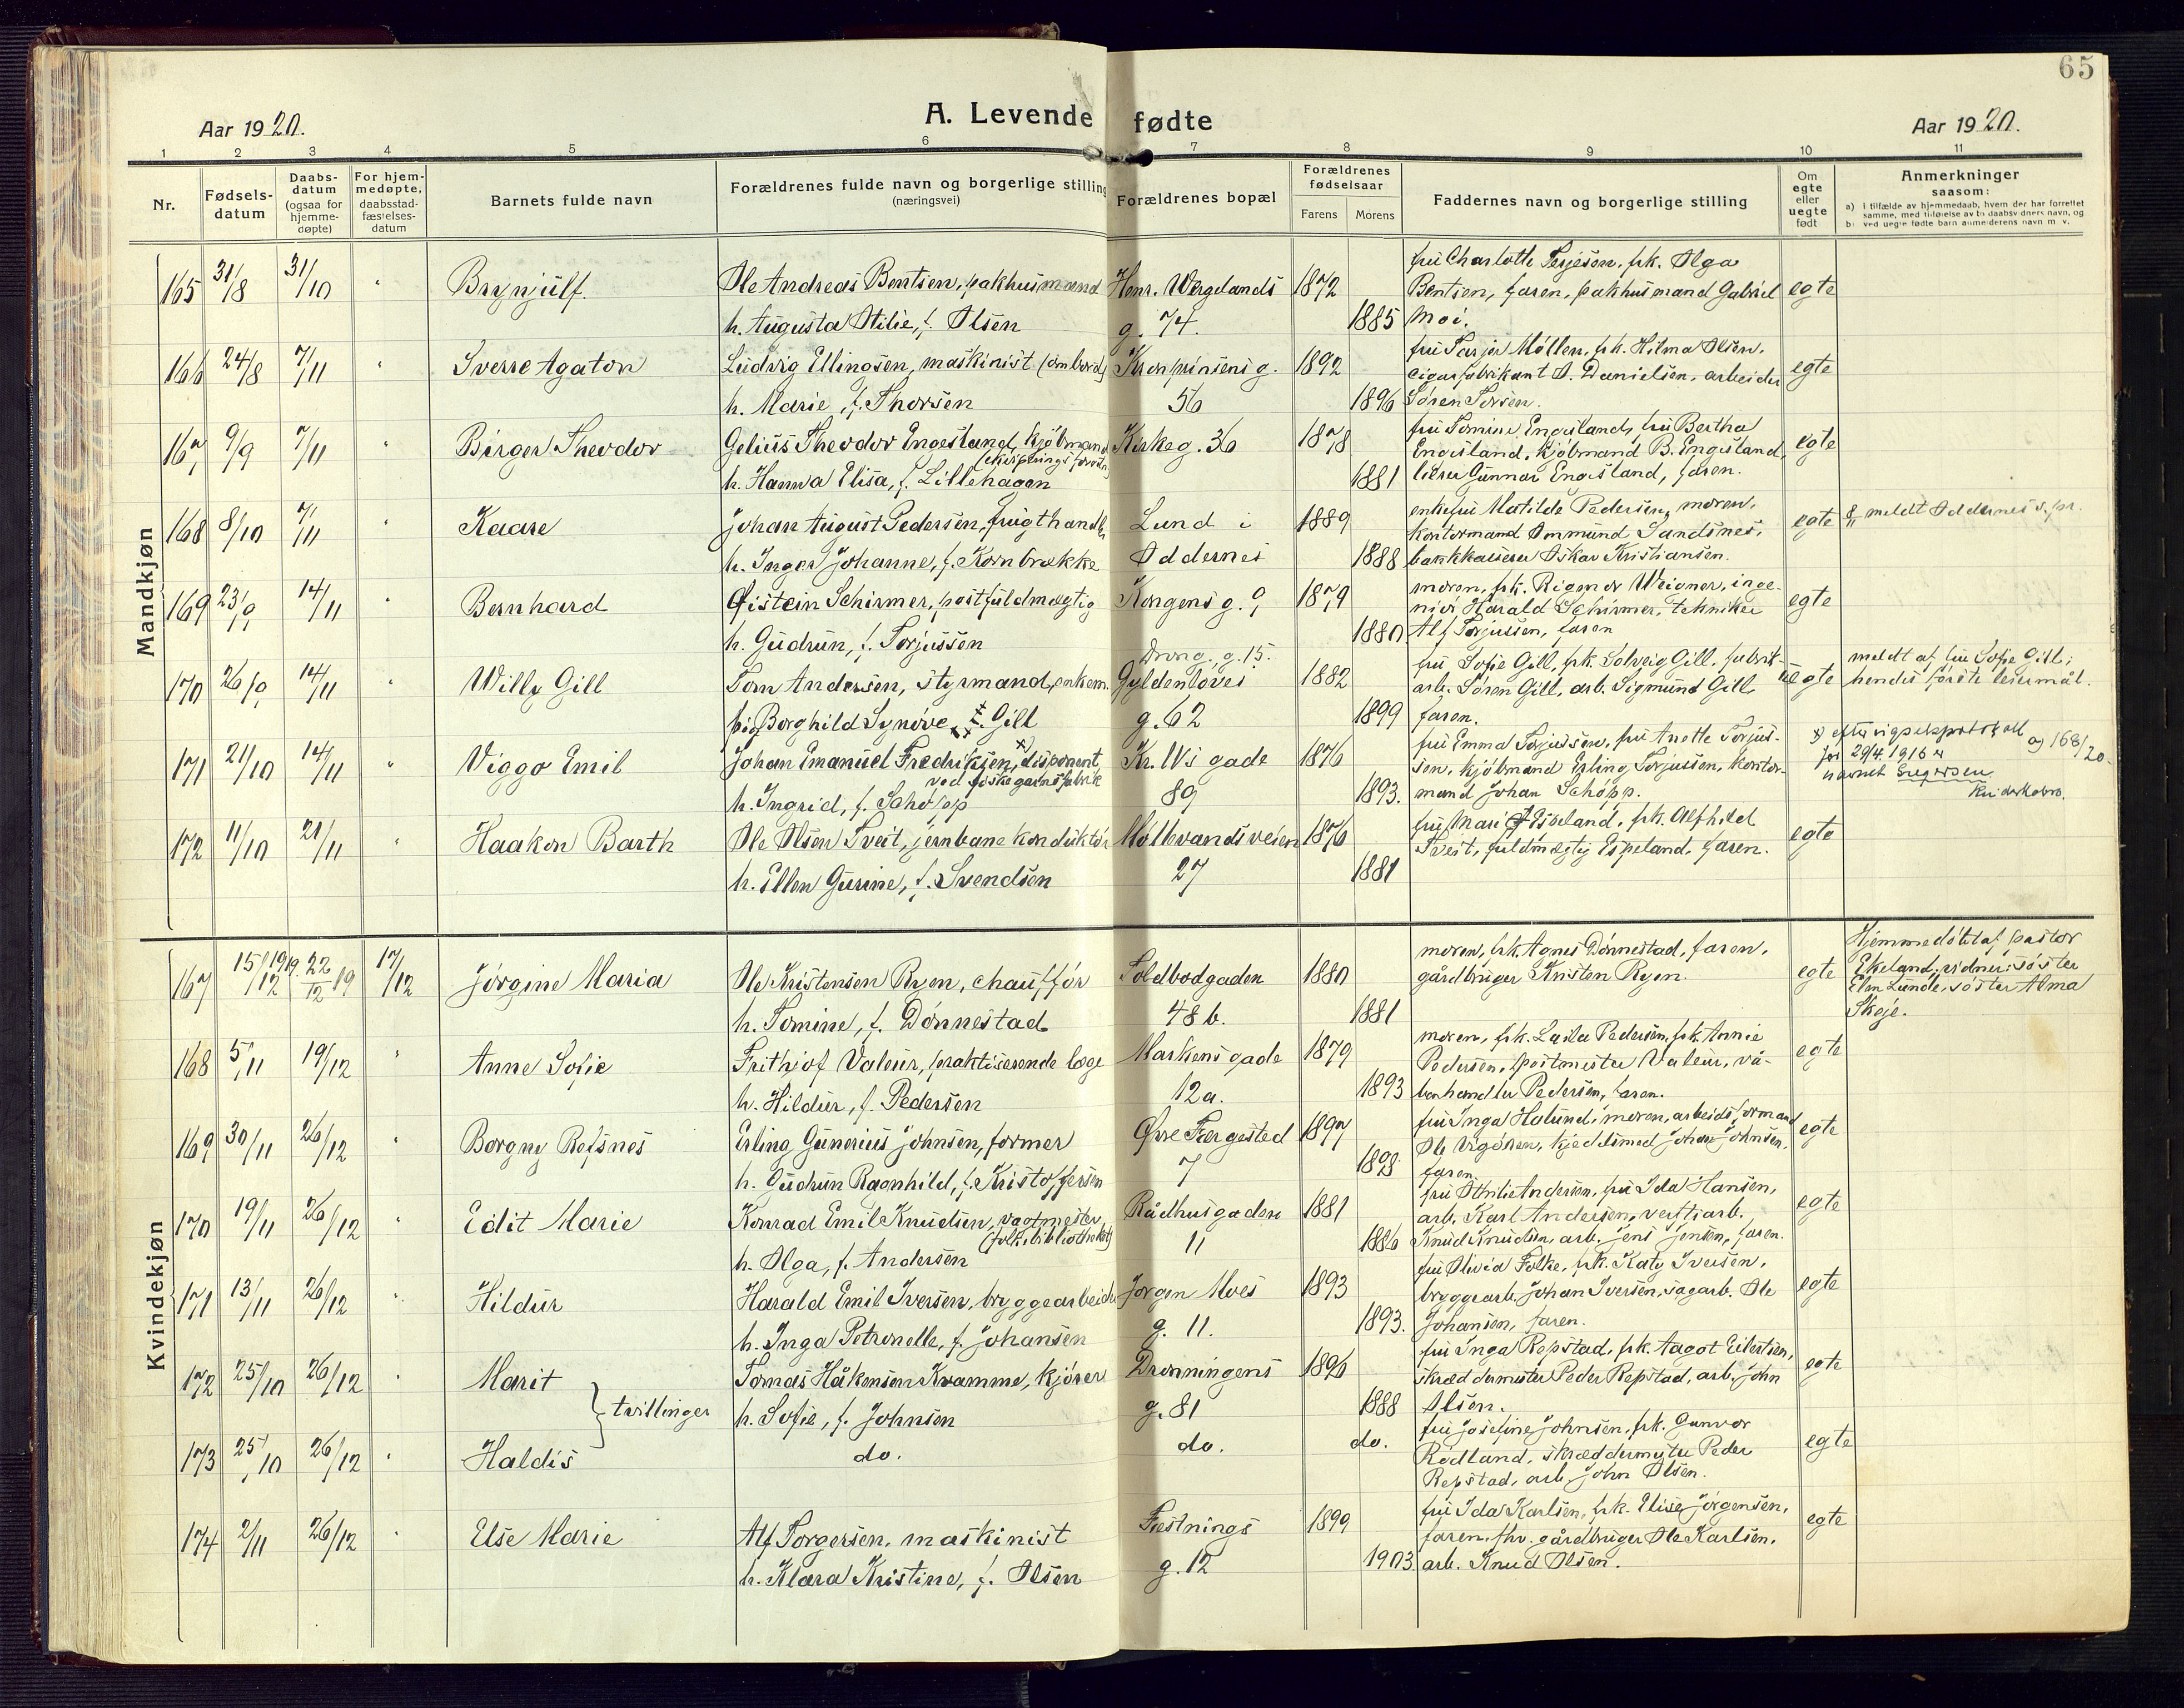 65
Aar 1920.
A. Levende fødte
Aar 1920.
1 2 3 4 5 6 7 8 9 10 11
Nr.
Fødsels-
datum
Daabs-
datum
(ogsaa for
hjemme-
døpte)
For hjem-
medøpte,
daabsstad-
fæstelses-
datum
Barnets fulde navn
Forældrenes fulde navn og borgerlige stilling
(næringsvei)
Forældrenes bopæl
Forældrenes
fødselsaar
Farens Morens
Faddernes navn og borgerlige stilling
Om
egte
eller
uegte
født
Anmerkninger
saasom:
a) i tilfælde av hjemmedaab, hvem der har forrettet
samme, med tilføielse av to daabsvidners navn, og
b) ved uegte fødte barn anmelderens navn m. v.
Mandkjøn
165 31/8 31/10 " Brynjulf. Ole Andreas Bentsen, pakhusmand Henr. Wergelands 1872
h. Augusta Otilie, f. Olsen g. 74. 1885
fru Charlotte Terjesen, frk. Olga
Bentsen, faren, pakhusmand Gabriel egte
Moi.
166 24/8 7/11 " Sverre Agaton Ludvig Ellingsen, maskinist (ombord) Kronprinsens g. 1892
h. Marie, f. Thorsen 56 1896
fru Møller, frk. Hilma Olsen,
cigarfabrikant O. Danielsen, arbeider egte
Søren
167 9/9 7/11 " Birger Theodor Gelius Theodor Engesland, kjøbmand Kirkeg. 36 1878
h. Hanna Elisa, f. Lillehagen 1881
fru Tomine Engesland, fru Bertha
Engesland, kjøbmand B. Engesland, egte
Gunnar Engesland, faren.
168 8/10 7/11 " Kaare Johan August Pedersen, frugthandl. Lund i 1889
h. Inger Johanne, f. Kornbrække Oddernes 1888
enkefru Matilde Pedersen, moren,
kontormand Ommund Sandsnes, egte
bankkasserer Oskar Kristiansen.
8/11 meldt Oddernes s.pr.
169 23/9 14/11 " Bernhard Øistein Schirmer, postfuldmægtig Kongens g. 9 1879
h. Gudrun, f. Torjussen 1880
moren, frk. Rigmor Weigner, inge-
niør Harald Schirmer, tekniker egte
Alf Torjussen, faren
170 26/9 14/11 " Willy Gill Tom Andersen, styrmand, enkem. Gyldenløves 1882
Drong. g. 15.
pige Borghild Synøve Gill g. 62 1899
fru Sofie Gill, frk. Solveig Gill, fabrik-
arb. Søren Gill, arb. Sigmund Gill uegte
faren.
meldt af fru Sofie Gill;
hendes første leiermål.
171 21/10 14/11 " Viggo Emil Johan Emanuel Fredriksen, x) disponent Kr. IVs gade 1876
ved fiskegarnsfabrik
h. Ingrid, f. Schøpp 89 1893.
fru Emma Torjussen, fru Anette Torjus-
sen, kjøbmand Erling Torjussen, kontor-
mand Johan Schøpp.
x) efter vigselsprotokoll
for 29/4 1916 og 168/20
navnet
172 11/10 21/11 " Haakon Barth Ole Olsen Tveit, jernbanekonduktør Møllevandsveien 1876
h. Ellen Gurine, f. Svendsen 27 1881
fru Marie Espeland, frk. Alfhild
Tveit, fuldmægtig Espeland, faren. egte
Kvindekjøn
167 15/12 1919 22/12 19 17/12 Jørgine Maria Ole Kristensen Ryen, chauffør Toldbodgaden 1880
h. Tomine, f. Dønnestad 48 b. 1881
moren, frk. Agnes Dønnestad, faren,
gårdbruger Kristen Ryen. egte
Hjemmedøbt af pastor
Ekeland, vidner: søster
Elen Lunde, søster Alma
Skeje.
168 5/11 19/12 " Anne Sofie Frithjof Valeur, praktiserende læge Markens gade 1879
h. Hildur, f. Pedersen 12a. 1893
moren, frk. Laila Pedersen, frk. Annie
Pedersen, postmester Valeur, vå- egte
benhandler Pedersen, faren.
169 30/11 26/12 " Borgny Refsnes Erling Gunerius Johnsen, former Øvre Færgested 1897
h. Gudrun Ragnhild, f. Kristoffersen 7 1898
fru Inga Holund, moren, arbeidsformand
Ole Uigonen, kjedelsmed Johan Johnsen, egte
faren.
170 19/11 26/12 " Edit Marie Konrad Emil Knudsen, vagtmester Rådhusgaden 1881
(folkebiblioteket)
h. Olga, f. Andersen 11 1886
fru Othilie Andersen, fru Ida Hansen,
arb. Karl Andersen, verftsarb. egte
Knud Knudsen, arb. Jens Jensen, faren.
171 13/11 26/12 " Hildur Harald Emil Iversen, bryggearbeider Jørgen Moes 1893
h. Inga Petronelle, f. Johansen g. 11. 1893.
fru Olivia Felke, frk. Katy Iversen,
bryggearb. Johan Iversen, sagarb. Ole egte
Johansen, faren.
172 25/10 26/12 " Marit Tomas Håkensen Kvamme, kjører Dronningens 1896
} tvillinger h. Sofie, f. Johnsen g. 81 1888
fru Inga Repstad, frk. Aagot Eilertsen,
skræddermester Peder Repstad, arb. John egte
Olsen.
173 25/10 26/12 " Haldis do. do. do.
fru Josefine Johnsen, frk. Gunvor
Rødland, skræddermester Peder egte
Repstad, arb. John Olsen.
174 2/11 26/12 " Else Marie Alf Torgersen, maskinist Festnings 1899
h. Klara Kristine, f. Olsen g. 12 1903.
fru Ida Karlsen, frk. Elise Jørgensen,
faren, fhv. gårdbruger Ole Karlsen, egte
arb. Knud Olsen.